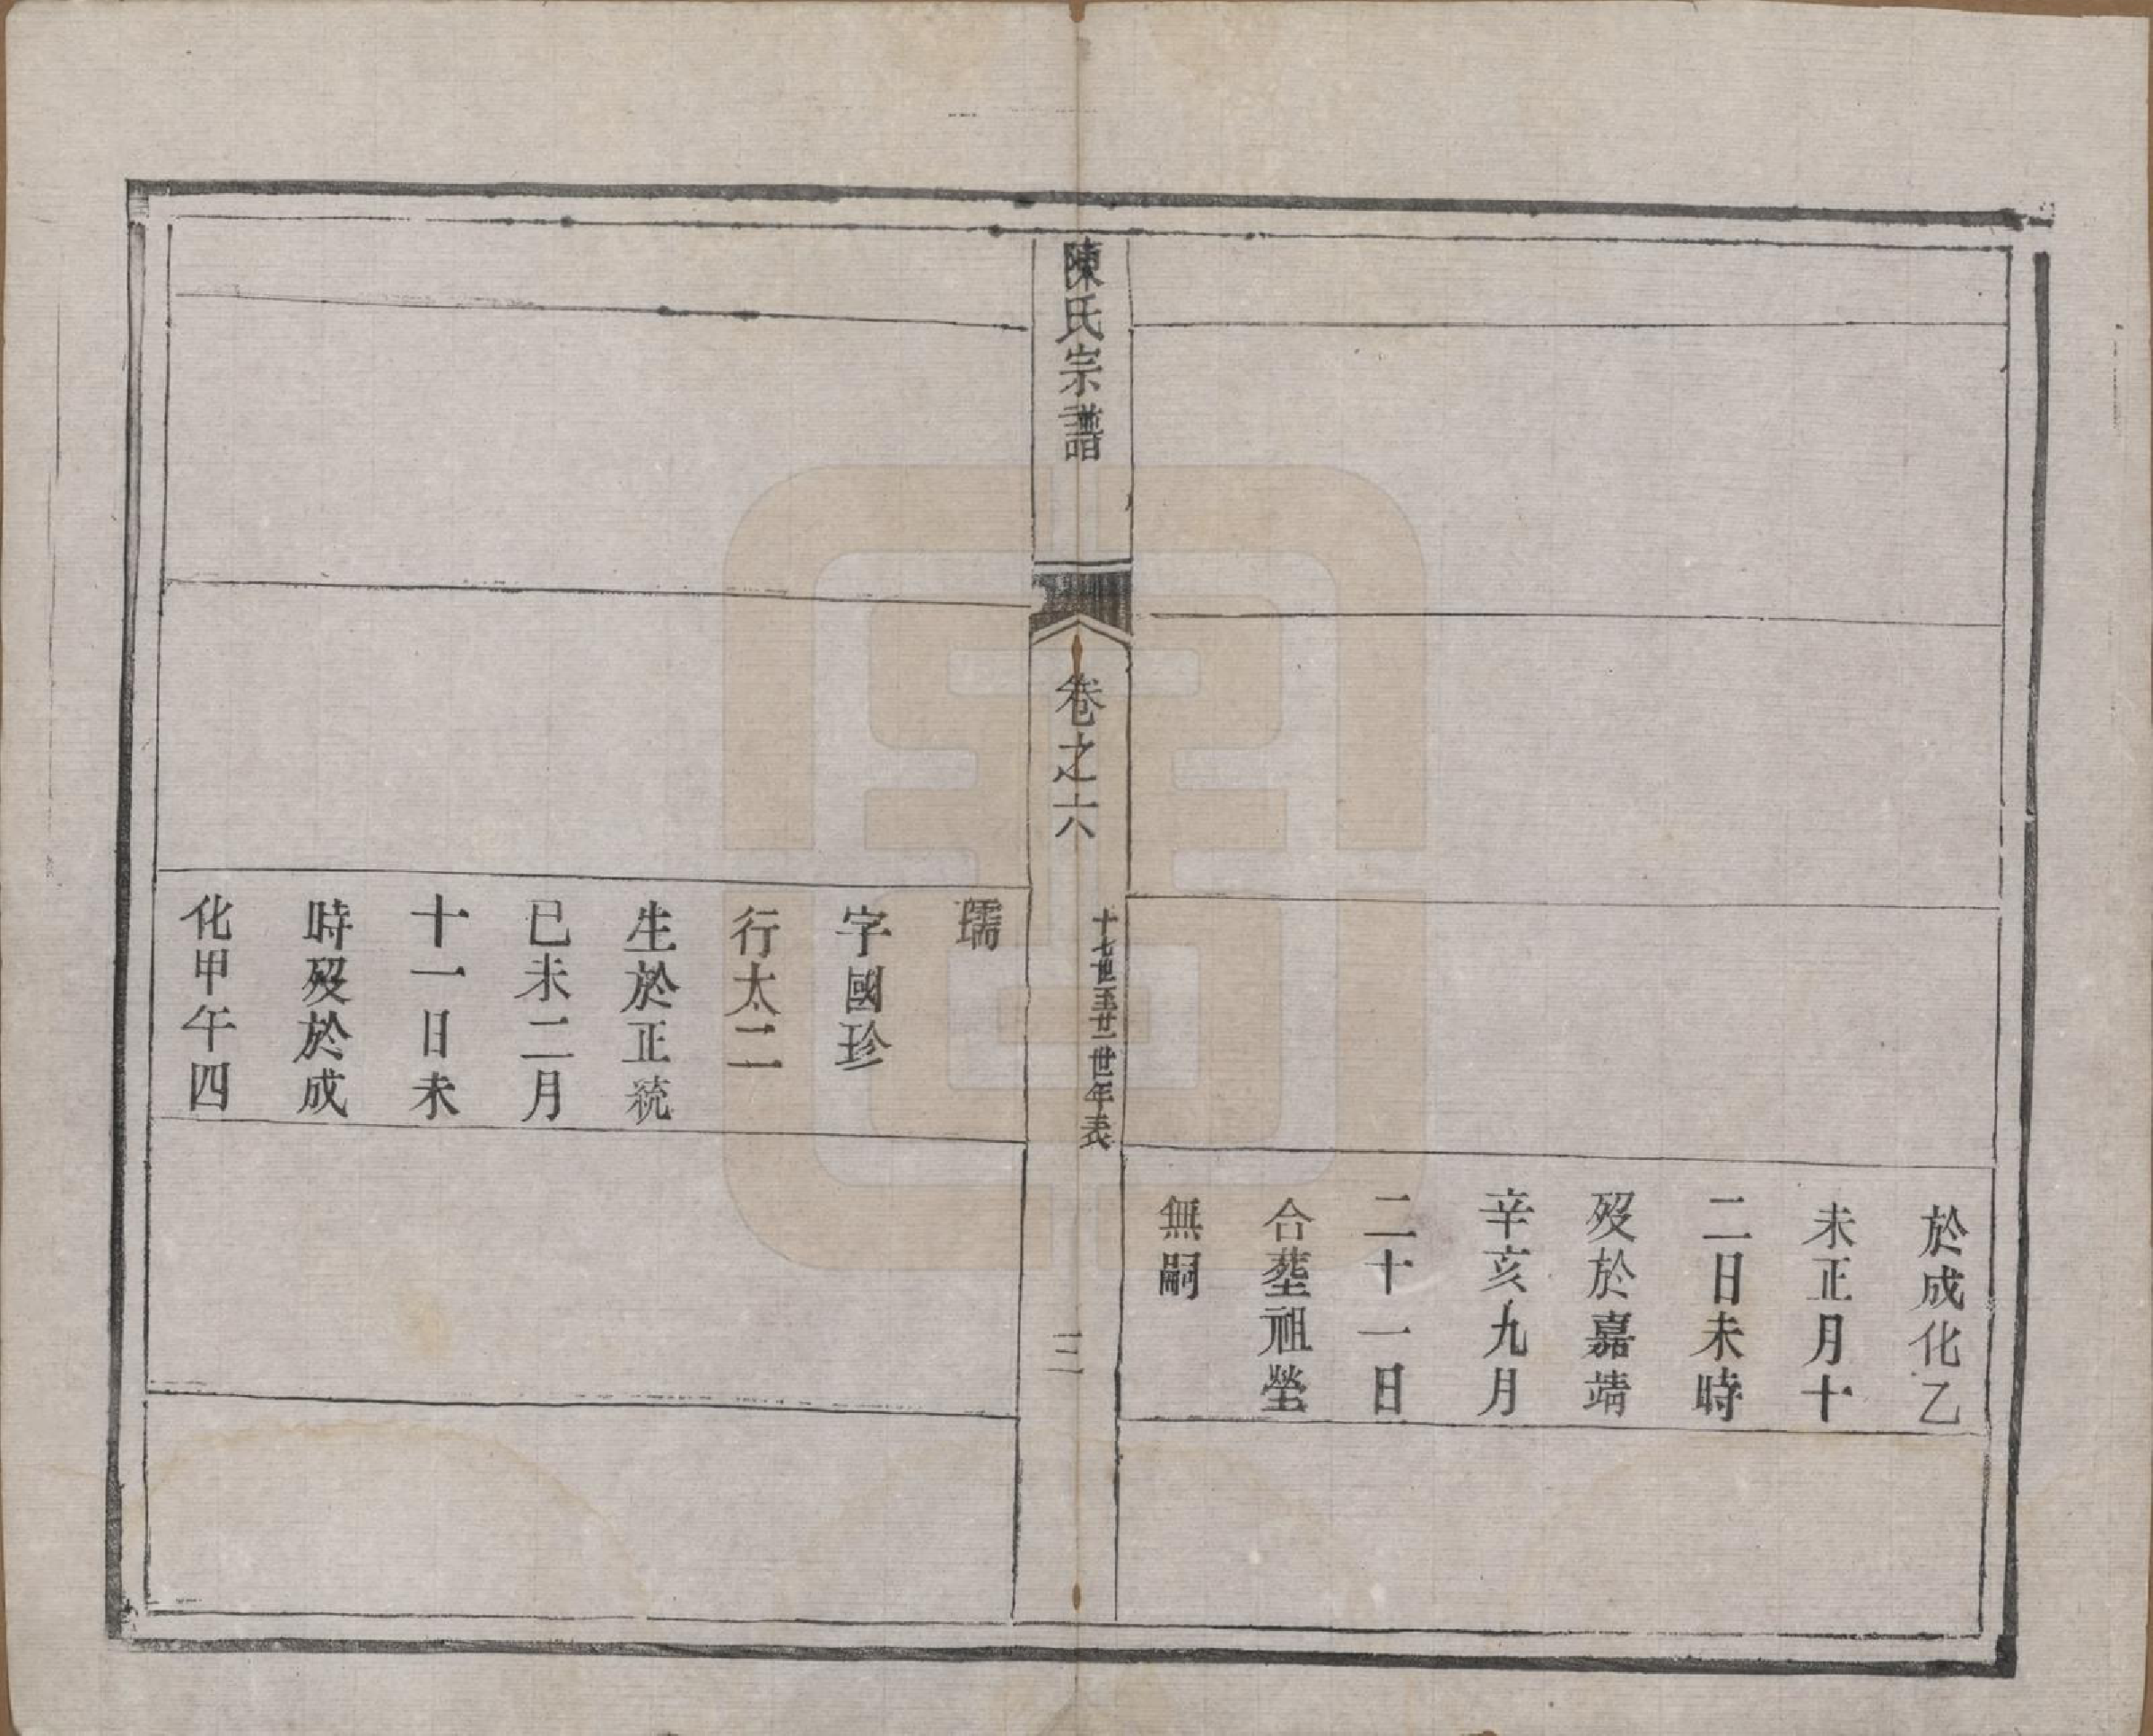 於成化乙
未正月十
二日未時
歿於嘉靖
辛亥九月
二十一日
合塟祖塋
無嗣
陳氏宗譜
卷之六
十七世至廿一世世年表
三
瓀
字國珍
行太二
生於正統
已未二月
十一日未
時歿於成
化甲午四